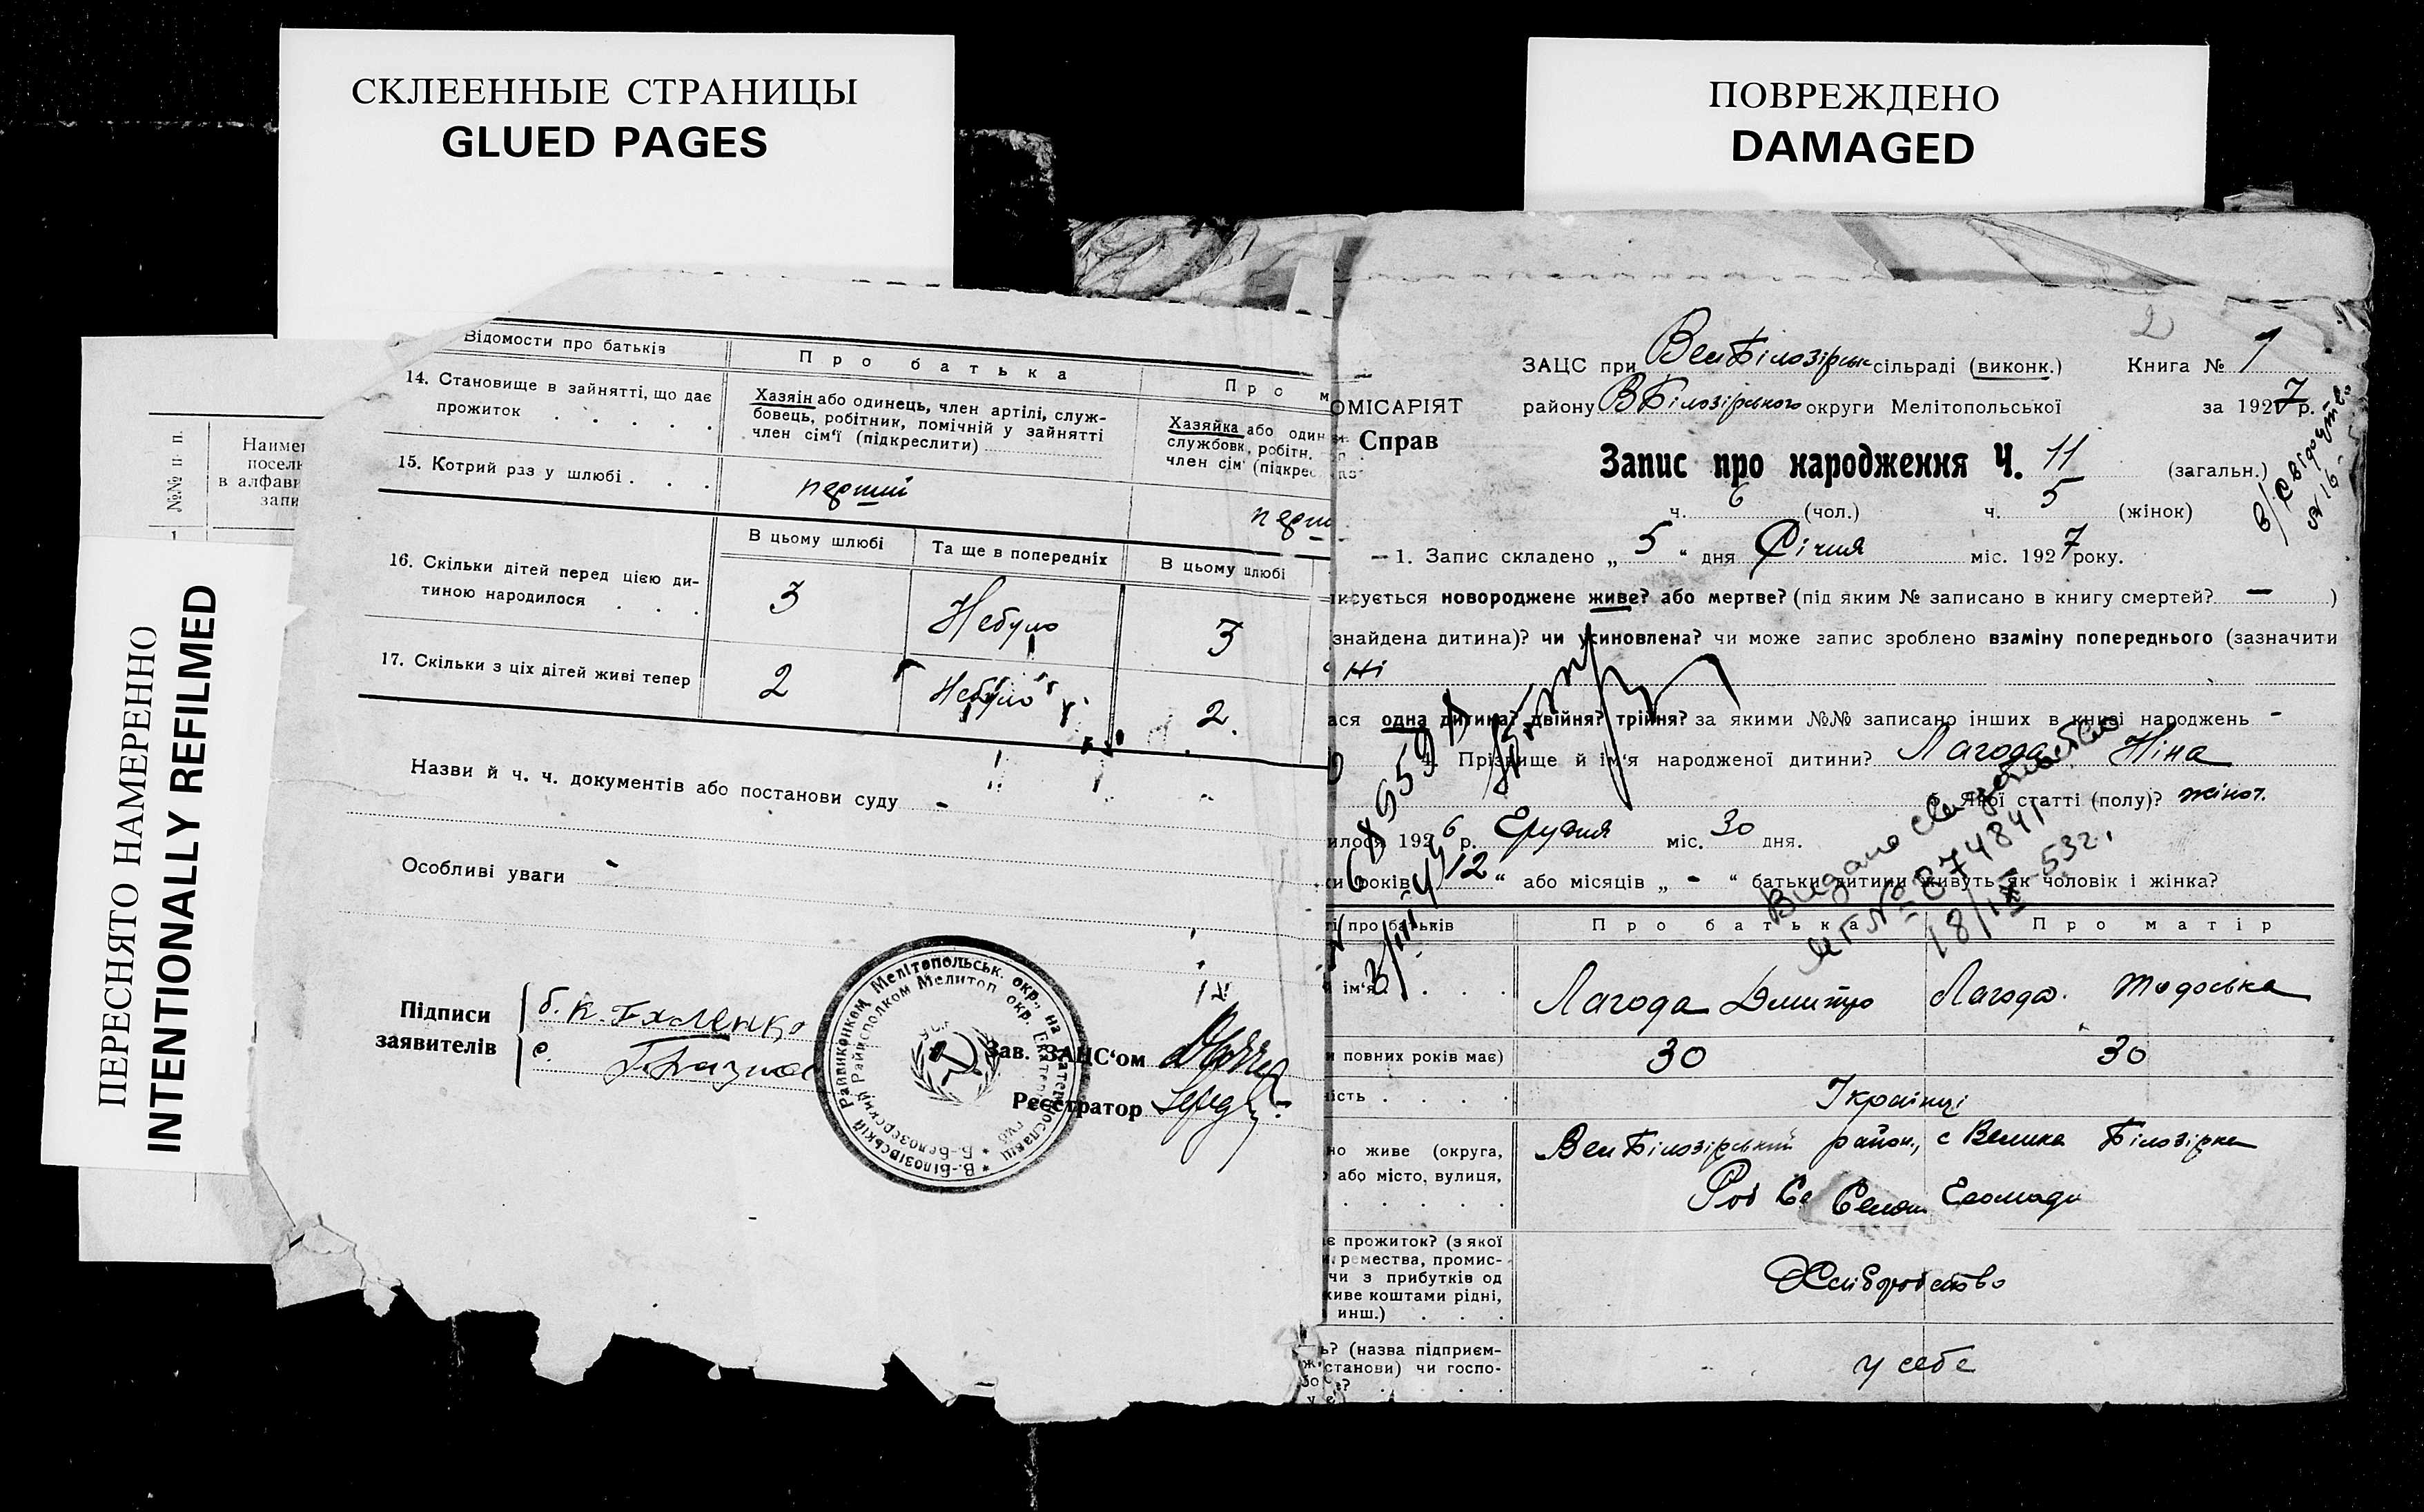 СКЛЕЕННЫЕ СТРАНИЦЫ
GLUED PAGES
ПОВРЕЖДЕНО
DAMAGED
ПЕРЕСНЯТО НАМЕРЕННО
INTENTIONALLY REFILMED
№№ п п.
Наимен
посел
в алфав
запи
1
Відомости про батьків
Про батька
Про м
14. Становище в зайнятті, що дає
прожиток . . . . .
Хазяін або одинець, член артілі, служ-
бовець, робітник, помічній у зайнятті
член сім'ї (підкреслити)
Хазяйка або один
службовк, робітн.
член сім' (підкрес
15. Котрий раз у шлюбі . . .
перший
перш
В цьому шлюбі
Та ще в попередніх
В цьому шлюбі
16. Скільки дітей перед цією ди-
тиною народилося . . .
3
Небуло
3
17. Скільки з ціх дітей живі тепер
2
Небуло
2.
Назви й ч. ч. документів або постанови суду -
Особливі уваги -
Підписи
заявителів
б. К.
с.
Зав. ЗАЦС'ом
Реєстратор
2
ЗАЦС при ВелБілозірськ сільраді (виконк.) Книга № 1
ОМІСАРІЯТ
району ВБілозірського округи Мелітопольської за 1927 р.
Справ
Запис про народження Ч. 11 (загальн.)
ч. 6 (чол.) ч. 5 (жінок)
№ 16
— 1. Запис складено „ 5 “ дня Січня міс. 1927 року.
ксується новороджене живе? або мертве? (під яким № записано в книгу смертей? — )
знайдена дитина)? чи усиновлена? чи може запис зроблено взаміну попереднього (зазначити
Ні
ася одна дитина? двійня? трійня? за якими №№ записано інших в книзі народжень -
4. Прізвище й ім'я народженої дитини? Лагода Ніна
Якої статті (полу)? жіноч.
илося 1926 р. Грудня міс. 30 дня.
ки років 12 “ або місяців „ - “ батьки дитини живуть як чоловік і жінка?
Видано свидетельство
№ 074841
18/IX-53г.
і про батьків
Про батька
Про матір
ім'я . . . .
Лагода Дмитро
Лагода Тодоська
и повних років має)
30
30
ість . . . .
Українці
но живе (округа,
або місто, вулиця,
ВелБілозірський район, с Велика Білозірка
Громади
є прожиток? (з якої
ремества, промис-
чи з прибутків од
живе коштами рідні,
инш.) . . .
Хліборобство
ь? (назва підприєм-
станови) чи госпо-
у себе